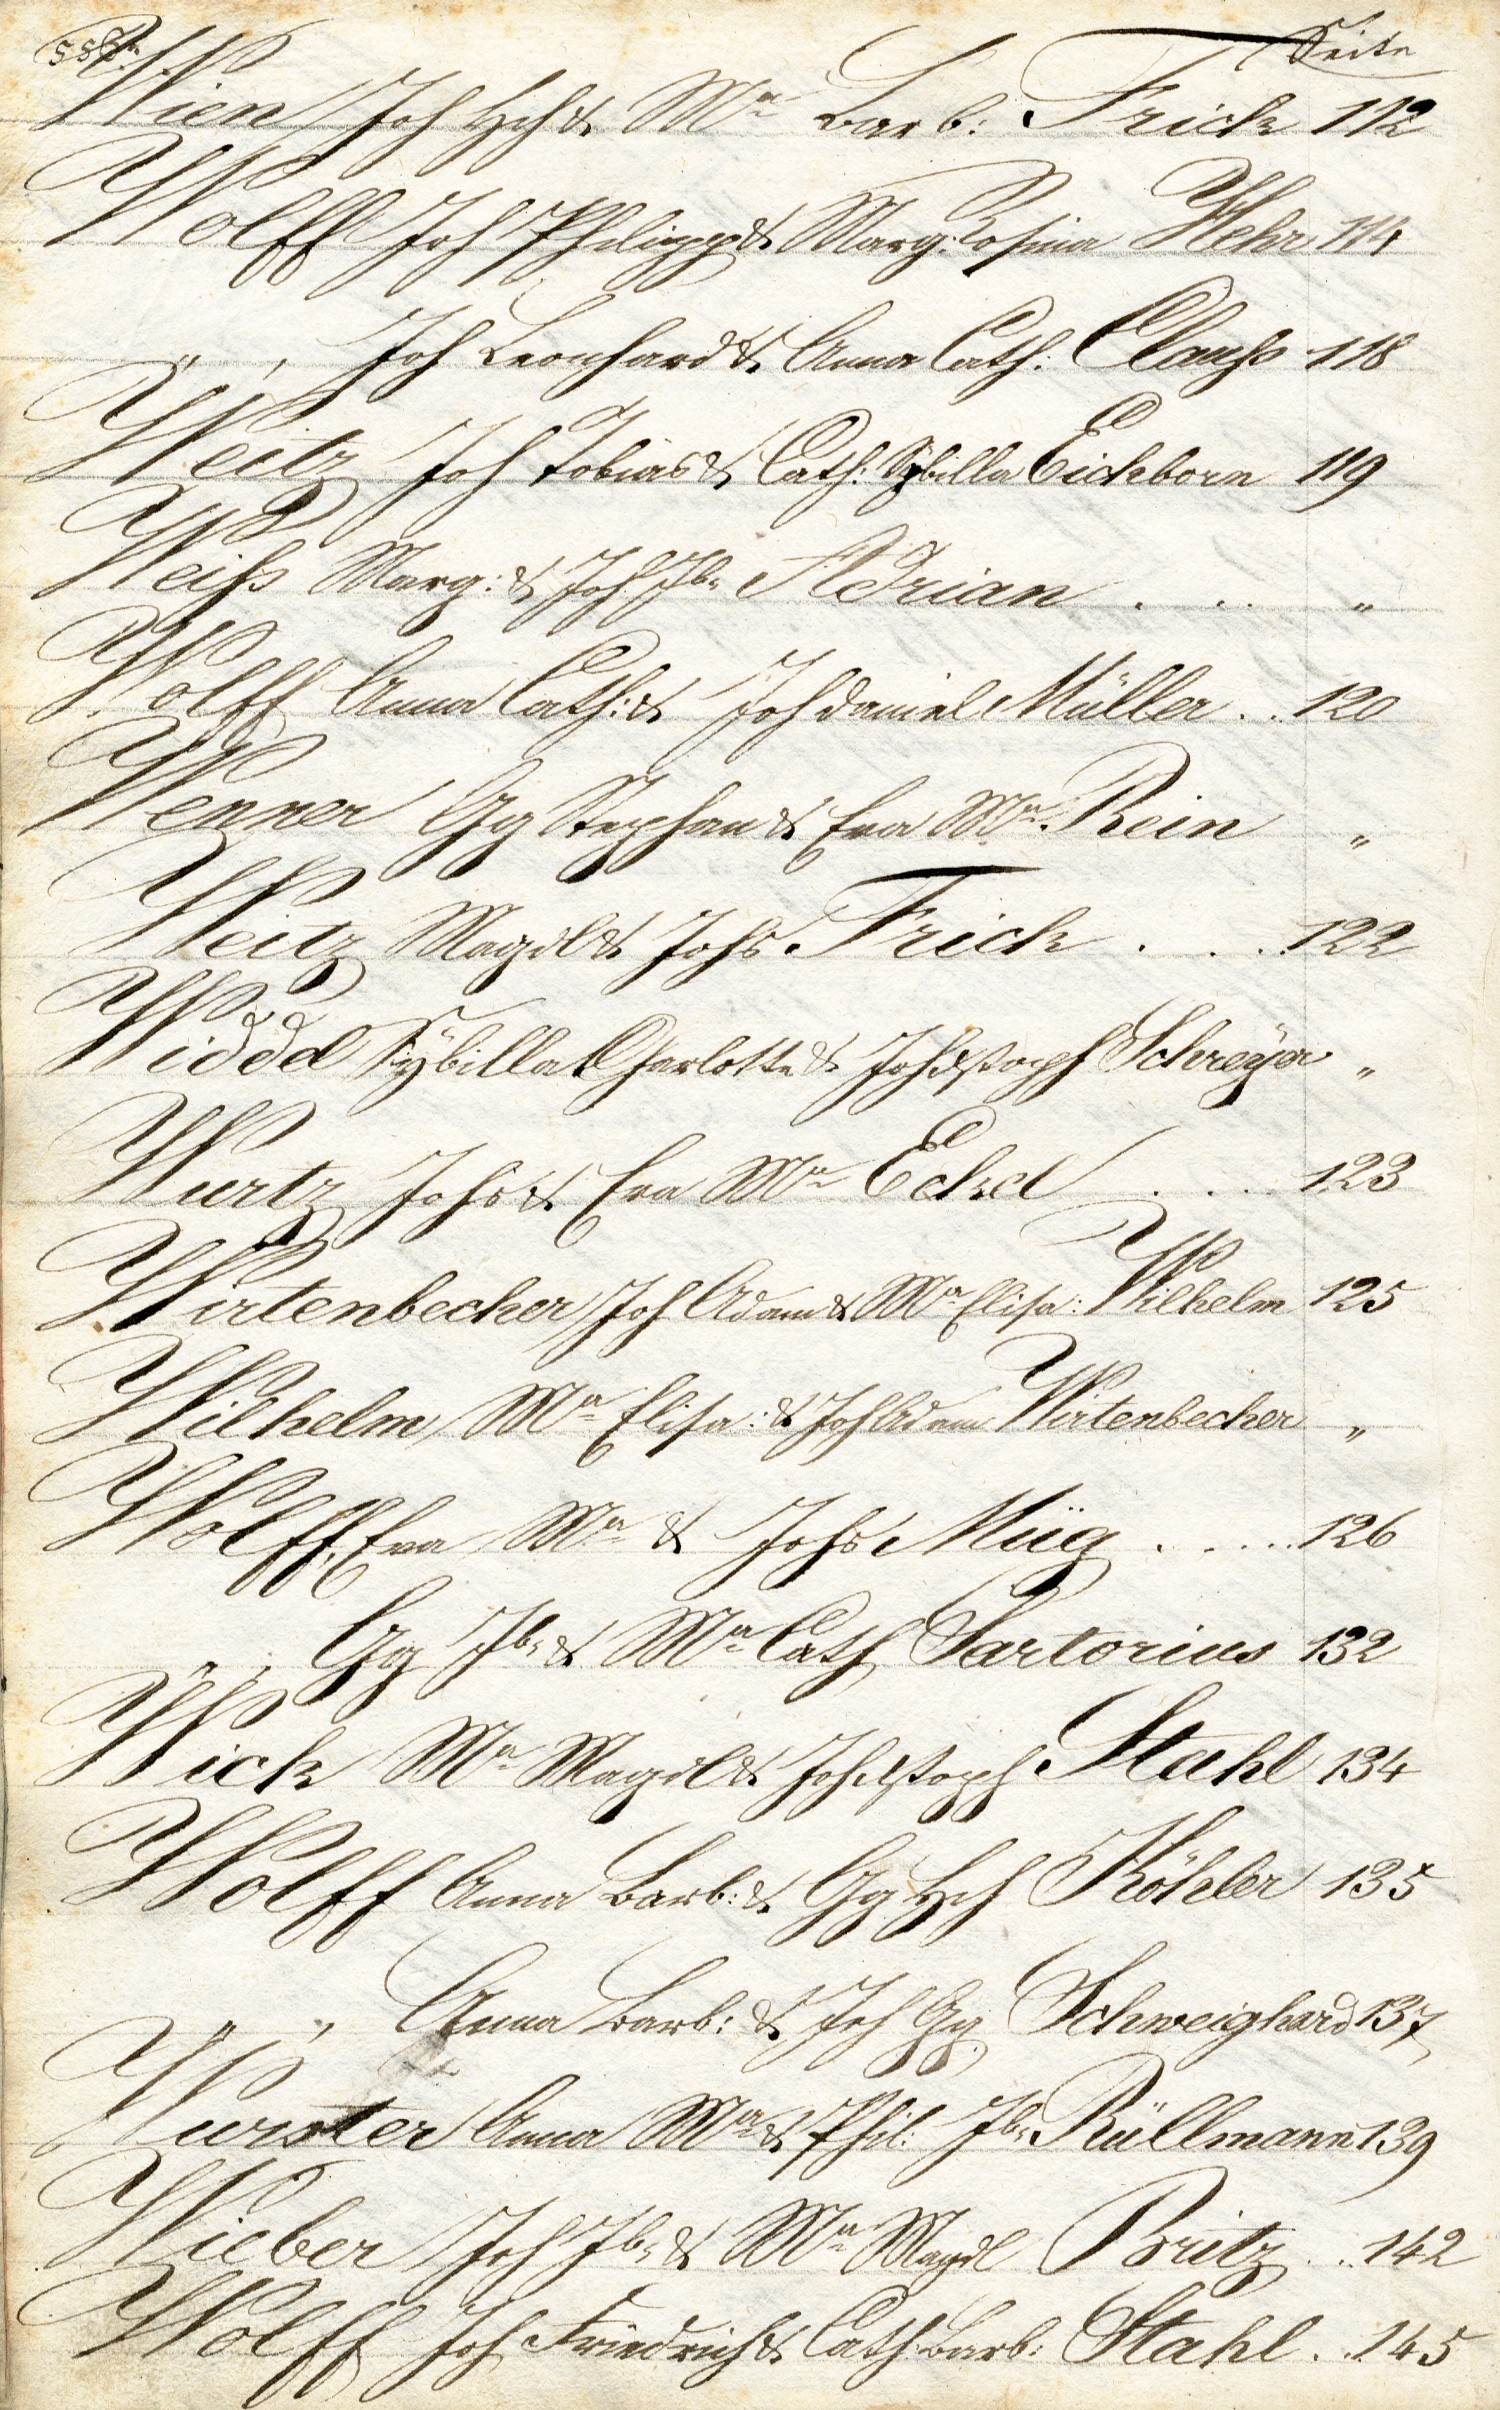 Seite
Wien Joh Hch & Mª Barb: Frick 112
Wolff Joh Philipp & Marg: Rosina Hehr 114
" " Joh Leonhard & Anna Cath: Clauß 118
Weitz Joh Tobias & Cath: Sÿbilla Eichborn 119
Weiss Marg: & Joh Jb: Adrian . . . "
Wolff Anna Cath: & Joh Daniel Müller . . 120
Wenner Gg Stephan & Eva Mª Rein "
Weitz Magdl & Johs Frick . . . 122
Widdel Sÿbilla Charlotte & Joh Chstoph Schreÿer "
Wurtz Johs & Eva Mª Eckel . . . 123
Wirtenbecher Joh Adam & Mª Elisa: Wilhelm 125
Wilhelm Mª Elisa: & Joh Adam Wirtenbecher "
Wolff, Eva Mª & Johs Müg . . . . . 126
" " Gg Jb: & Mª Cath Sartorius 132
Wick Mª Magdl & Joh Chstoph Stahl 134
Wolff Anna Barb: & Gg Hch Köhler 135
" " Anna Barb: & Joh Gg Schweighard 137
Wurster Anna Mª & Phil: Jb: Rüllmann 139
Wieber Joh Jb: & Mª Magdl Britz . . 142
Wolff Joh Friedrich & Cath: Barb: Stahl . . 145